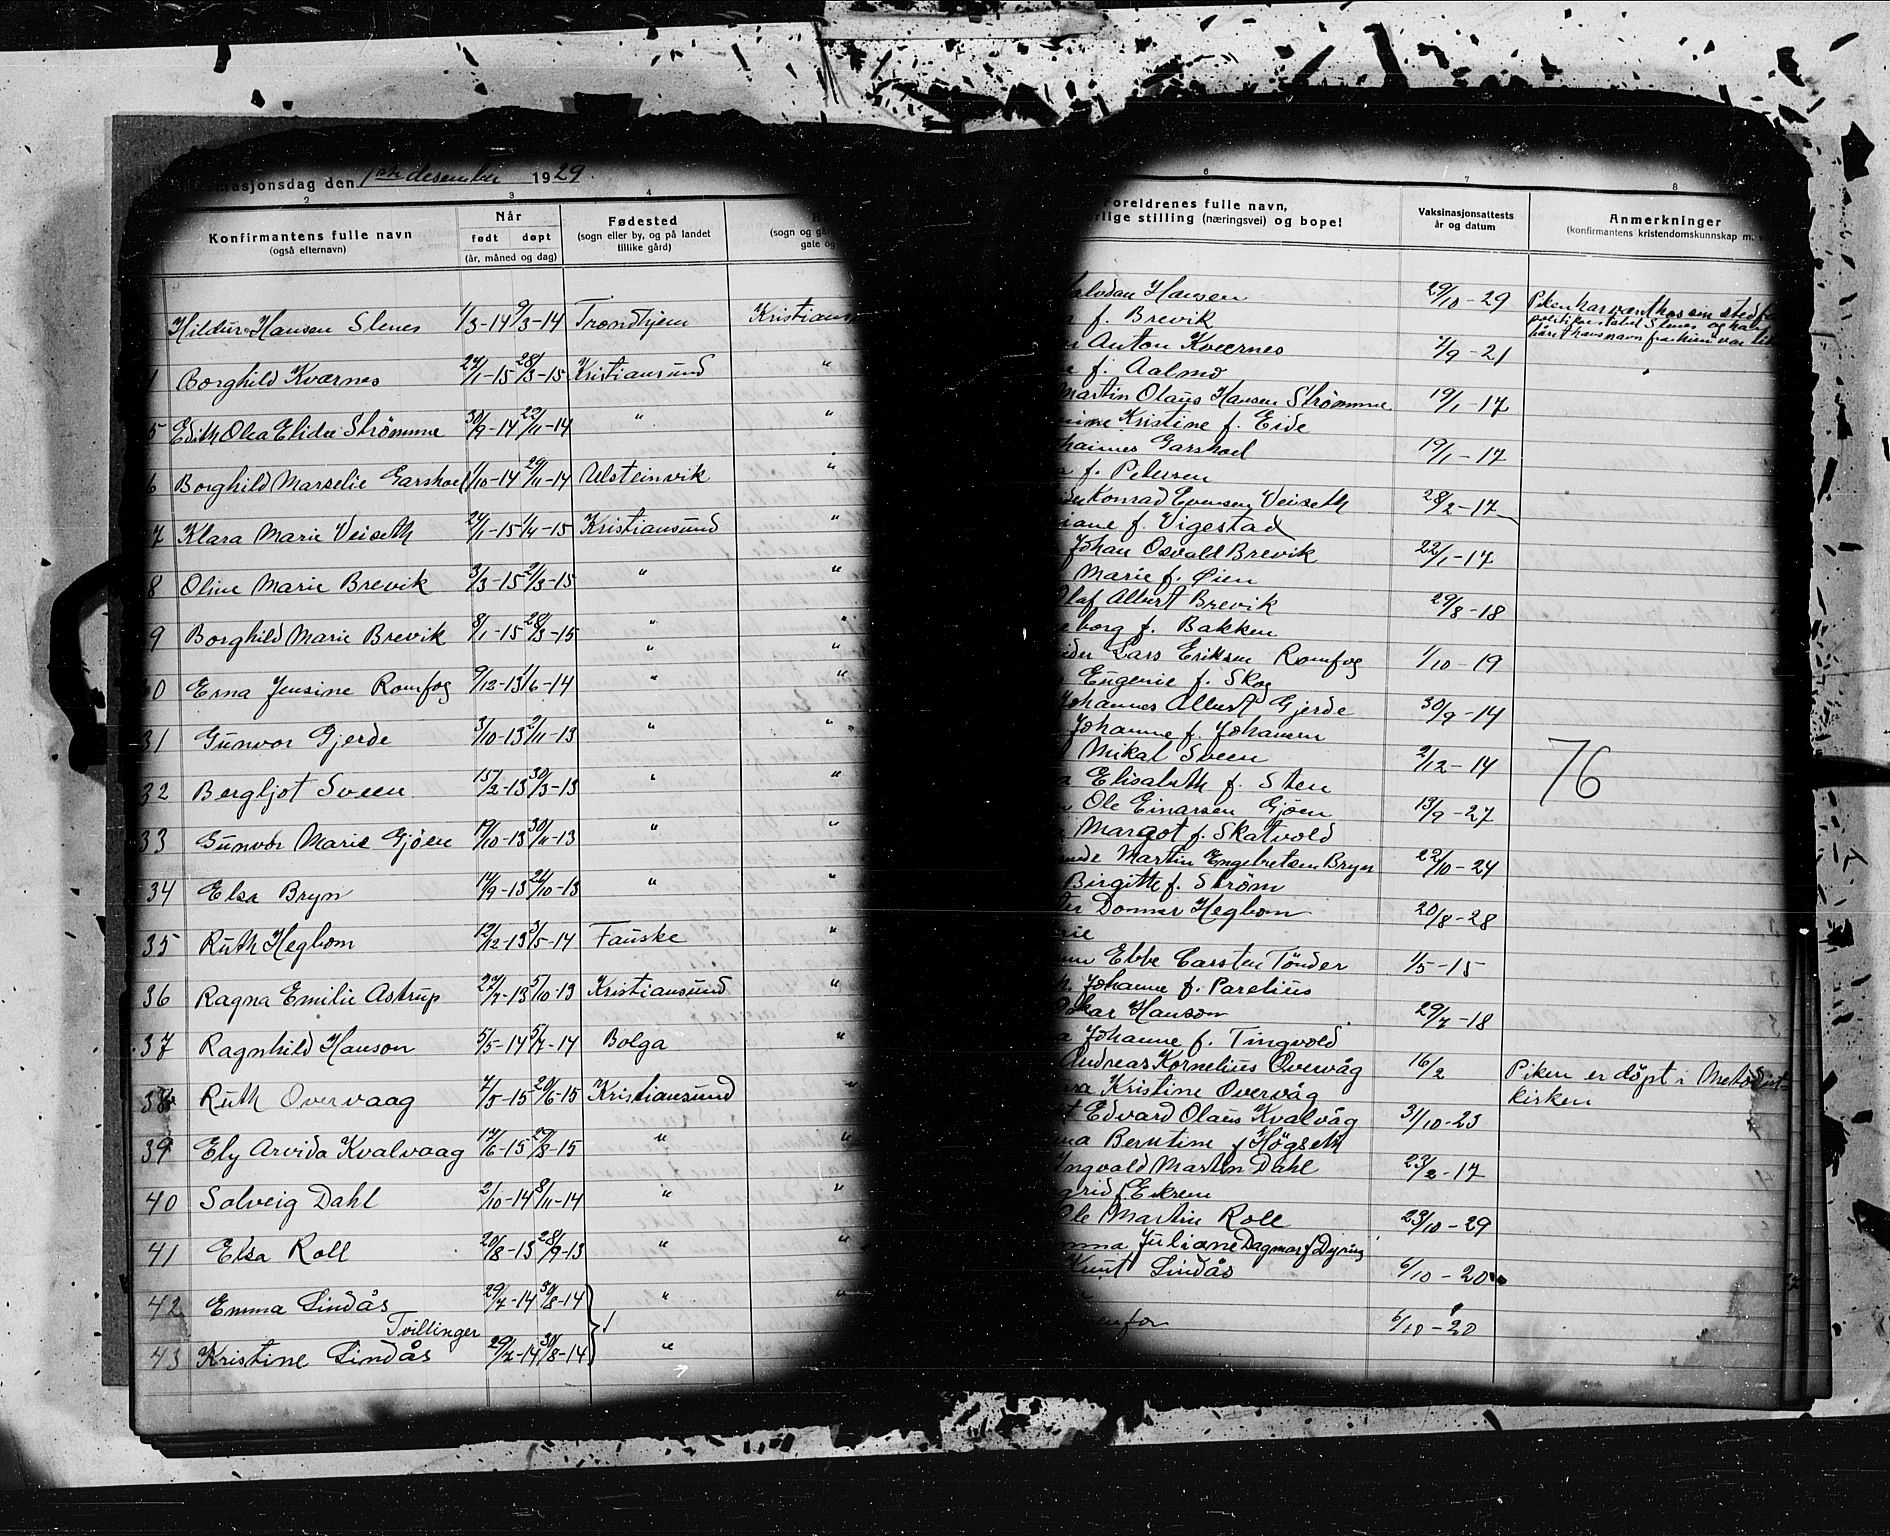 asjonsdag den 1ste desember 1929.
2 3 4
Konfirmantens fulle navn
(også efternavn)
Når
født døpt
(år, måned og dag)
Fødested
(sogn eller by, og på landet
tillike gård)
(sogn og
gate og
Hildur Hansen Slenes 1/3-14 9/3-14 Trondhjem Kristians
Borghild Kvernes 24/1-15 28/3-15 Kristiansund "
5 Edith Olea Elida Strømme 30/9-14 22/11-14 " "
6 Borghild Marselie Garshoel 1/10-14 29/11-14 Ulsteinvik "
7 Klara Marie Veiseth 24/1-15 1/4-15 Kristiansund "
8 Oline Marie Brevik 3/3-15 2/3-15 " "
9 Borghild Marie Brevik 8/1-15 28/3-15 " "
30 Erna Jensine Romfog 9/12-13 1/6-14 " "
31 Gunvor Gjerde 3/10-13 2/11-13 " "
32 Bergljot Sveen 15/2-13 30/3-13 " "
33 Gunvor Marie Gjøen 19/10-13 30/11-13 " "
34 Elsa Bryn 14/9-13 26/10-13 " "
35 Ruth Hegbom 12/12-13 3/5-14 Fauske "
36 Ragna Emilie Astrup 27/7-13 5/10-13 Kristiansund "
37 Ragnhild Hanson 5/5-14 5/7-14 Bolga "
38 Ruth Overvaag 7/5-15 20/6-15 Kristiansund "
39 Ely Arvida Kvalvaag 17/6-15 29/8-15 " "
40 Solveig Dahl 2/10-14 8/11-14 " "
41 Elsa Roll 20/8-13 28/9-13 " "
42 Emma Lindås 29/7-14 30/8-14 " "
Tvillinger
43 Kristine Lindås 29/7-14 30/8-14 "
6 7 8
Foreldrenes fulle navn,
rlige stilling (næringsvei) og bopel
Vaksinasjonsattests
år og datum
Anmerkninger
(konfirmantens kristendomskunnskap m. v.
Halvdan Hansen 29/10-29 Piken har vært hos sin
f. Brevik
Anton Kvernes 7/9-21
f. Aalmo
Martin Olaus Hansen Strømme 19/1-17
Kristine f. Eide
hannes Garshoel 19/1-17
f. Petersen
Konrad Evensen Veiseth 28/2-17
iane f. Vigestad
Johan Osvald Brevik 22/1-17
Marie f. Øien
Olaf Albert Brevik 29/8-18
eborg f. Bakken
Lars Eriksen Romfog 1/10-19
Eugenie f. Skog
Johannes Albert Gjerde 30/9-14
Johanne f. Johansen
Mikal Sveen 2/12-14
76
Elisabeth f. Sten
Ole Einarsen Gjøen 13/9-27
Margot f. Skatvold
Martin Engebretsen Bryn 22/10-24
Birgitte f. Strøm
Donner Hegbom 20/8-28
Ebbe Carsten Tønder 1/5-15
Johanne f. Parelius
Oskar Hanson 29/7-18
Johanne f. Tingvold
Andreas Kornelius Overvåg 16/2 Piken er døpt i Metodist
Kristine Overvåg kirken
Edvard Olaus Kvalvåg 31/10-23
Berntine f Høgseth
Ingvald Martin Dahl 23/2-17
grid f. Ekrem
Ole Martin Roll 23/10-29
Juliane Dagmar f Dyring
Knut Lindås 6/10-20
enfor 6/10-20